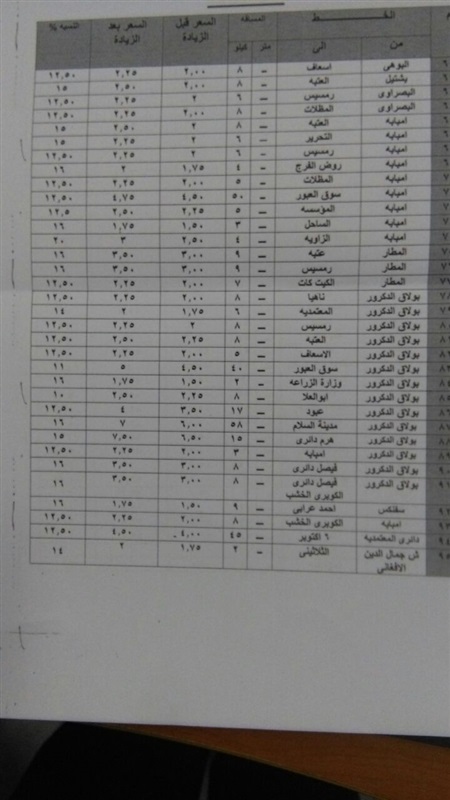 م الخـــط المسافه السعر قبل الزيادة السعر بعد الزيادة النسبه %
من الى متر كيلو
٦ البوهى اسعاف ـ ٨ ٢,٠٠ ٢,٢٥ ١٢,٥٠
٦ بشتيل العتبه ـ ٨ ٢,٠٠ ٢,٥٠ ١٥
٦ البصراوى رمسيس ـ ٦ ٢ ٢,٢٥ ١٢,٥٠
٦ البصراوى المظلات ـ ٨ ٢,٠٠ ٢,٢٥ ١٢,٥٠
٦ امبابه العتبه ـ ٨ ٢ ٢,٥٠ ١٥
٦ امبابه التحرير ـ ٦ ٢ ٢,٢٥ ١٥
٦ امبابه رمسيس ـ ٦ ٢ ٢,٢٥ ١٢,٥٠
٦ امبابه روض الفرج ـ ٤ ١,٧٥ ٢ ١٦
٧ امبابه المظلات ـ ٥ ٢,٠٠ ٢,٢٥ ١٢,٥٠
٧ امبابه سوق العبور ـ ٥٠ ٤,٥٠ ٤,٧٥ ١٢,٥٠
٧ امبابه المؤسسه ـ ٥ ٢,٢٥ ٢,٥٠ ١٢,٥
٧ امبابه الساحل ـ ٣ ١,٥٠ ١,٧٥ ١٦
٧ امبابه الزاويه ـ ٤ ٢,٥٠ ٣ ٢٠
٧ المطار عتبه ـ ٩ ٣,٠٠ ٣,٥٠ ١٦
٧ المطار رمسيس ـ ٩ ٣,٠٠ ٣,٥٠ ١٦
٧٧ المطار الكيت كات ـ ٧ ٢,٠٠ ٢,٢٥ ١٢,٥٠
٧٨ بولاق الدكرور ناهيا ـ ٨ ٢,٠٠ ٢,٢٥ ١٢,٥٠
٧٩ بولاق الدكرور المعتمديه ـ ٦ ١,٧٥ ٢ ١٤
٨٠ بولاق الدكرور رمسيس ـ ٨ ٢ ٢,٢٥ ١٢,٥٠
٨١ بولاق الدكرور العتبه ـ ٨ ٢,٢٥ ٢,٥٠ ١٢,٥٠
٨٢ بولاق الدكرور الاسعاف ـ ٥ ٢,٠٠ ٢,٢٥ ١٢,٥٠
٨٣ بولاق الدكرور سوق العبور ـ ٤٠ ٤,٥٠ ٥ ١١
٨٤ بولاق الدكرور وزارة الزراعه ـ ٢ ١,٥٠ ١,٧٥ ١٦
٨٥ بولاق الدكرور ابوالعلا ـ ٨ ٢,٢٥ ٢,٥٠ ١٠
٨٦ بولاق الدكرور عبود ـ ١٧ ٣,٥٠ ٤ ١٢,٥٠
٨٧ بولاق الدكرور مدينة السلام ـ ٥٨ ٦,٠٠ ٧ ١٦
٨٨ بولاق الدكرور هرم دائرى ـ ١٥ ٦,٥٠ ٧,٥٠ ١٥
٨٩ بولاق الدكرور امبابه ـ ٣ ٢,٠٠ ٢,٢٥ ١٢,٥٠
٩٠ بولاق الدكرور فيصل دائرى ـ ٨ ٣,٠٠ ٣,٥٠ ١٦
٩١ بولاق الدكرور فيصل دائرى ـ ٨ ٣,٠٠ ٣,٥٠ ١٦
الكوبرى الخشب
٩٢ سفنكس احمد عرابى ـ ٩ ١,٥٠ ١,٧٥ ١٦
٩٣ امبابه الكوبرى الخشب ـ ٨ ٢,٠٠ ٢,٢٥ ١٢,٥٠
٩٤ دائرى المعتمديه ٦ اكتوبر ـ ٤٥ ٤,٠٠ ٤,٥٠ ١٢,٥٠
٩٥ ش جمال الدين الافغانى الثلاثينى ـ ٢ ١,٧٥ ٢ ١٤